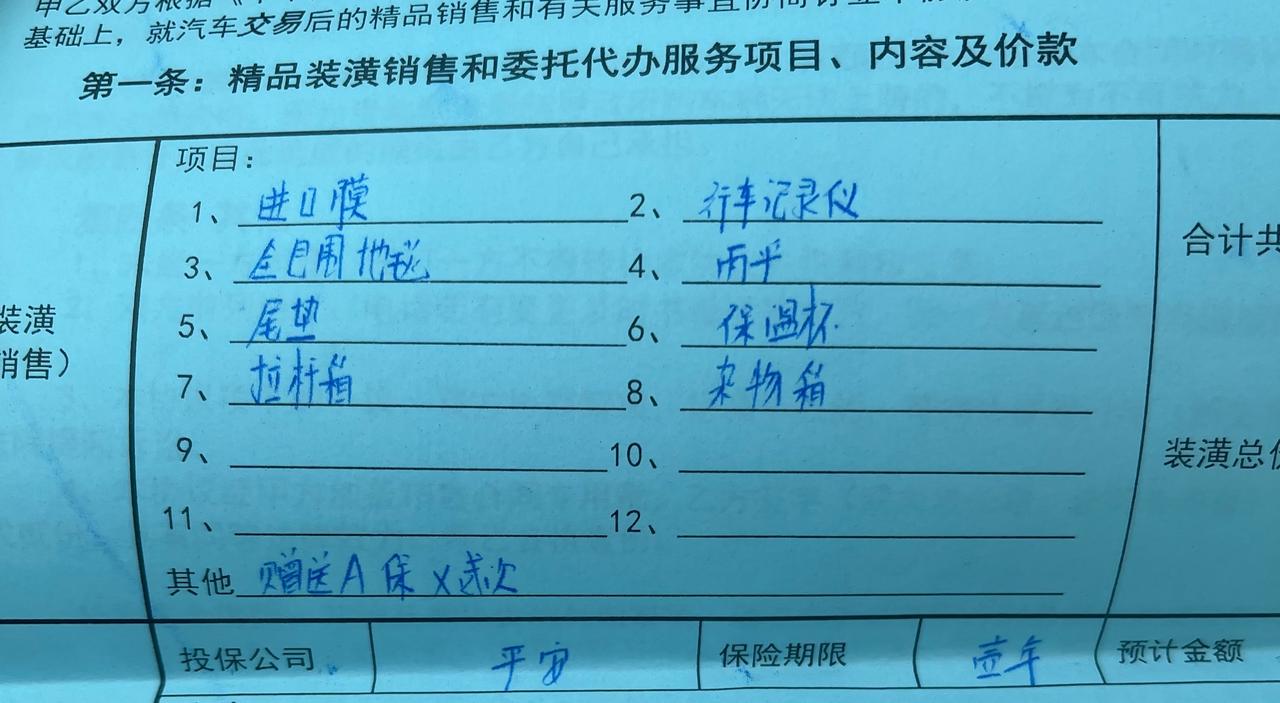 甲乙双方根据《
基础上，就汽车交易后的精品销售和有关服务事宜协商订立
第一条：精品装潢销售和委托代办服务项目、内容及价款
项目：
1、进口膜 2、行车记录仪
3、全包围地毯 4、雨伞
合计共
装潢
5、尾垫 6、保温杯
销售）
7、拉杆箱 8、杂物箱
9、 10、
装潢总价
11、 12、
其他 赠送A保X 次
投保公司 平安 保险期限 壹年 预计金额